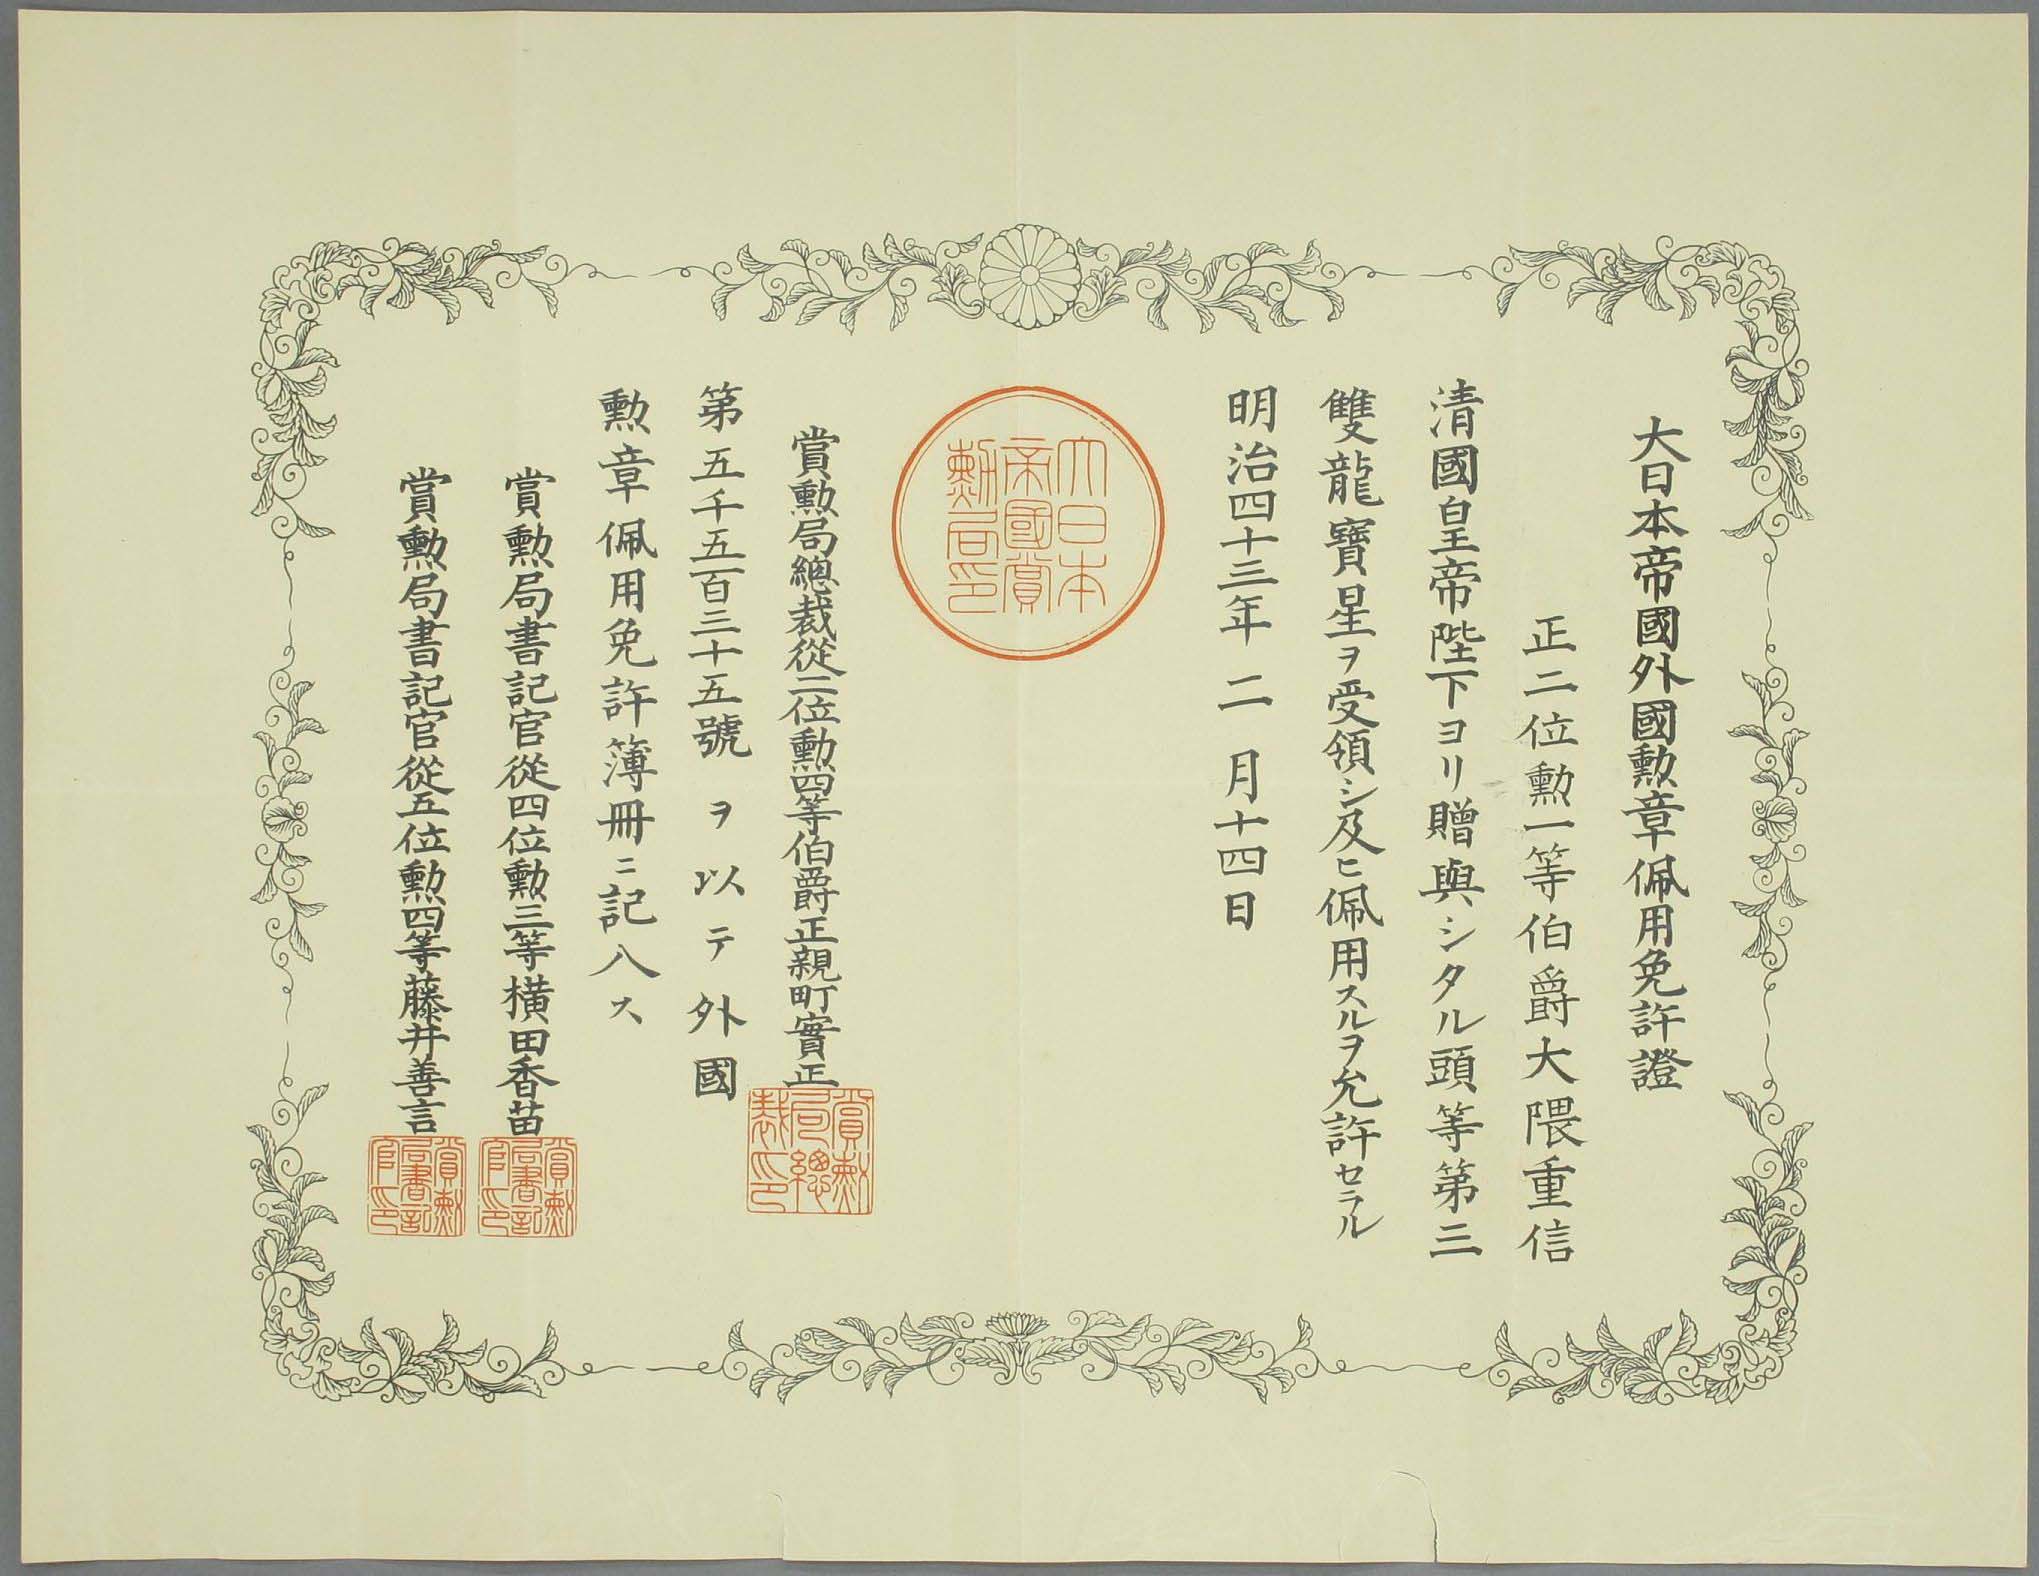 大日本帝國外國勲章佩用免許證
正二位勲一等伯爵大隈重信
清國皇帝陛下ヨリ贈與シタル頭等第三
雙龍寶星ヲ受領シ及ヒ佩用スルヲ允許セラル
明治四十三年二月十四日
大日本
帝國賞
勲局印
賞勲局總裁從二位勲四等伯爵正親町實正
賞勲
局總
裁印
第五千五百三十五號ヲ以テ外國
勲章佩用免許簿冊ニ記入ス
賞勲局書記官從四位勲三等横田香苗
賞勲
局書記
官印
賞勲局書記官從五位勲四等藤井善言
賞勲
局書記
官印